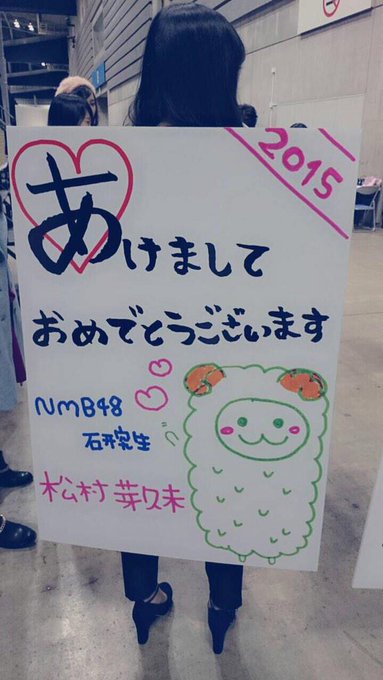 2015
あけまして
おめでとうございます
NMB48
研究生
松村 芽久未